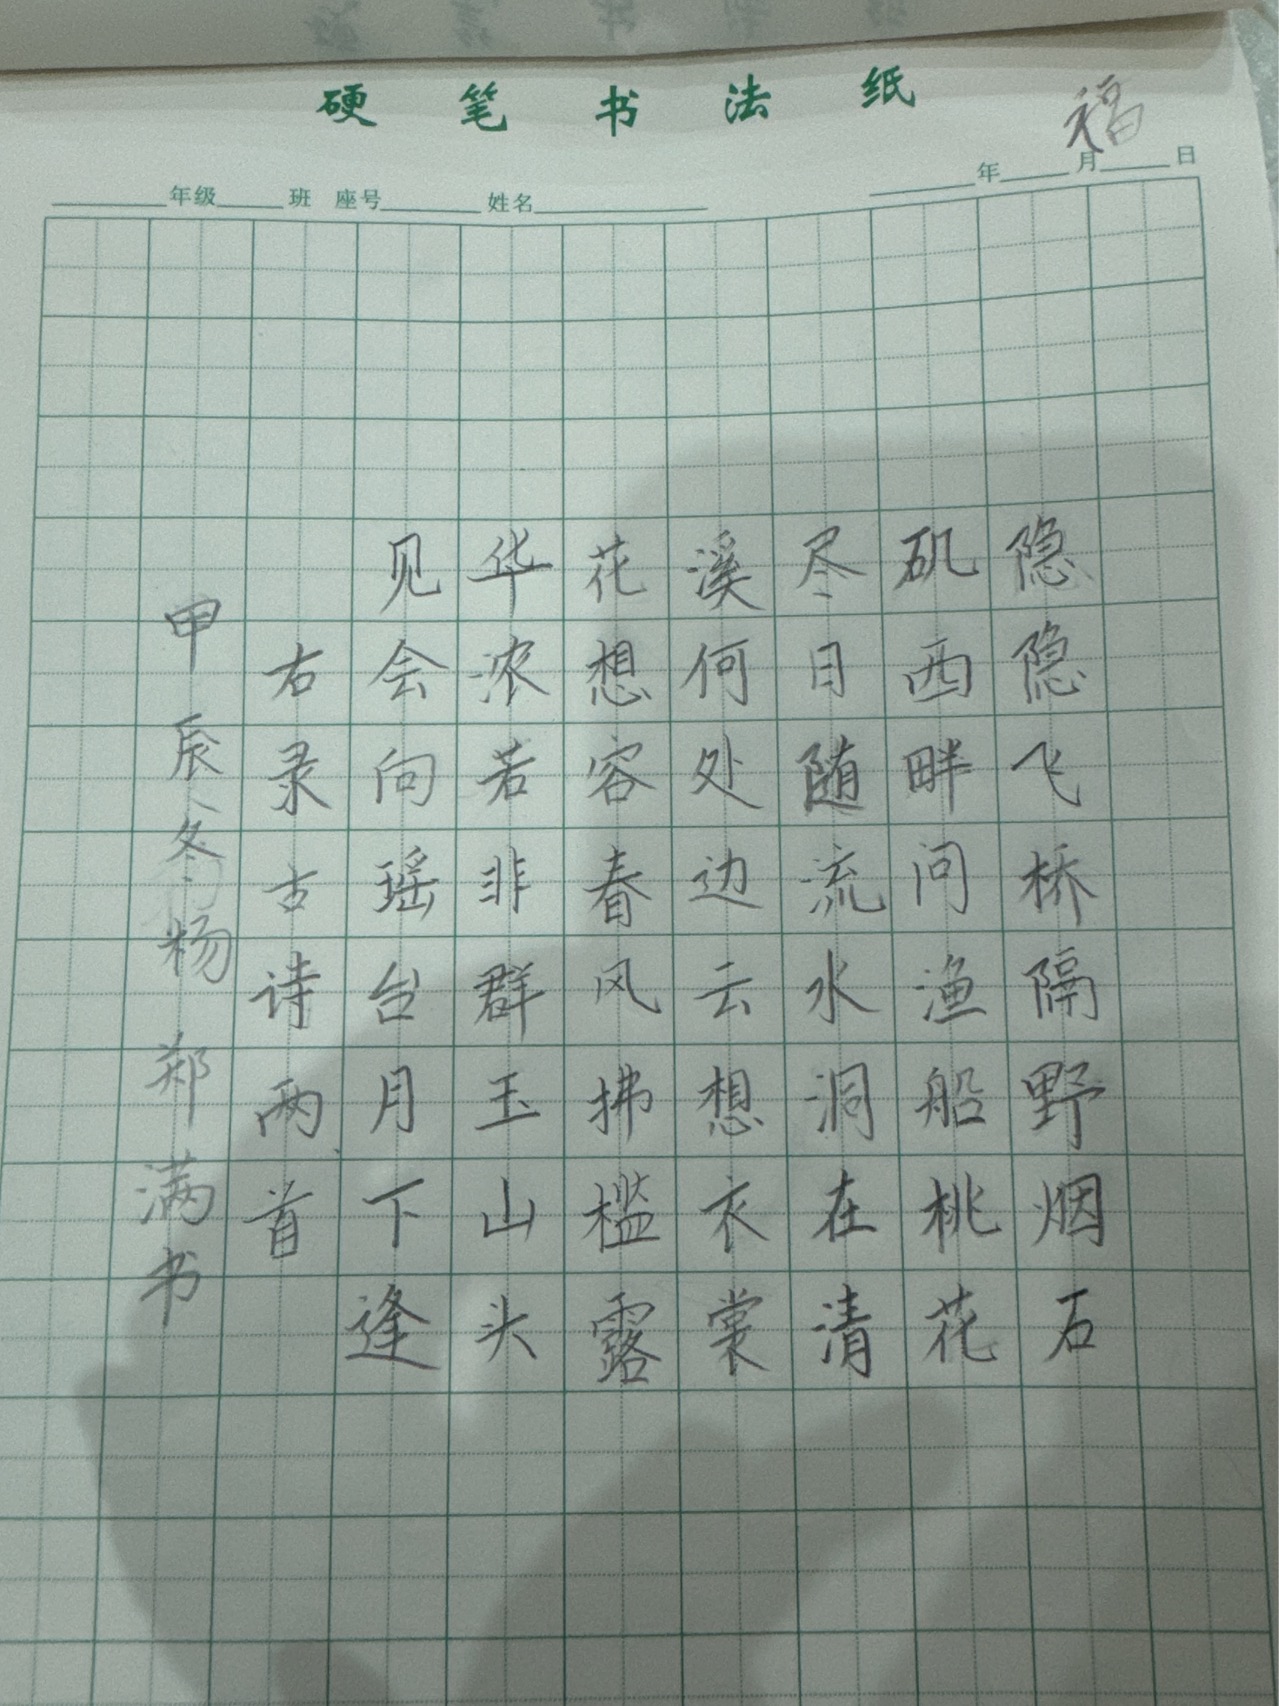 硬笔书法纸
福
年级 班 座号 姓名 年 月 日
隐隐飞桥隔野烟石
矶西畔问渔船桃花
尽日随流水洞在清
溪何处边云想衣裳
花想容春风拂槛露
华浓若非群玉山头
见会向瑶台月下逢
右录古诗两首
甲辰冬杨郑满书